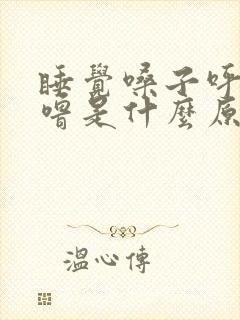 睡覺嗓子呼
噜是什麼原
溫心傳